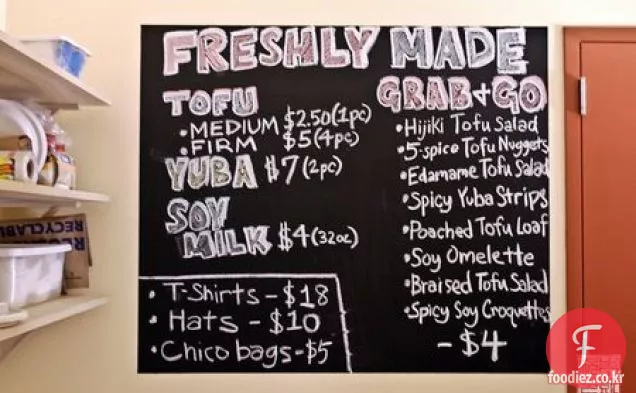 FRESHLY MADE
TOFU
• MEDIUM $2.50 (1pc)
• FIRM $5 (4pc)
YUBA $7 (2pc)
SOY
MILK $4 (32oz)
• T-Shirts - $18
• Hats - $10
• Chico bags - $5
GRAB + GO
• Hijiki Tofu Salad
• 5-spice Tofu Nuggets
• Edamame Tofu Salad
• Spicy Yuba Strips
• Poached Tofu Loaf
• Soy Omelette
• Braised Tofu Salad
• Spicy Soy Croquettes
- $4
RECYCLABLE
F
foodiez.co.kr